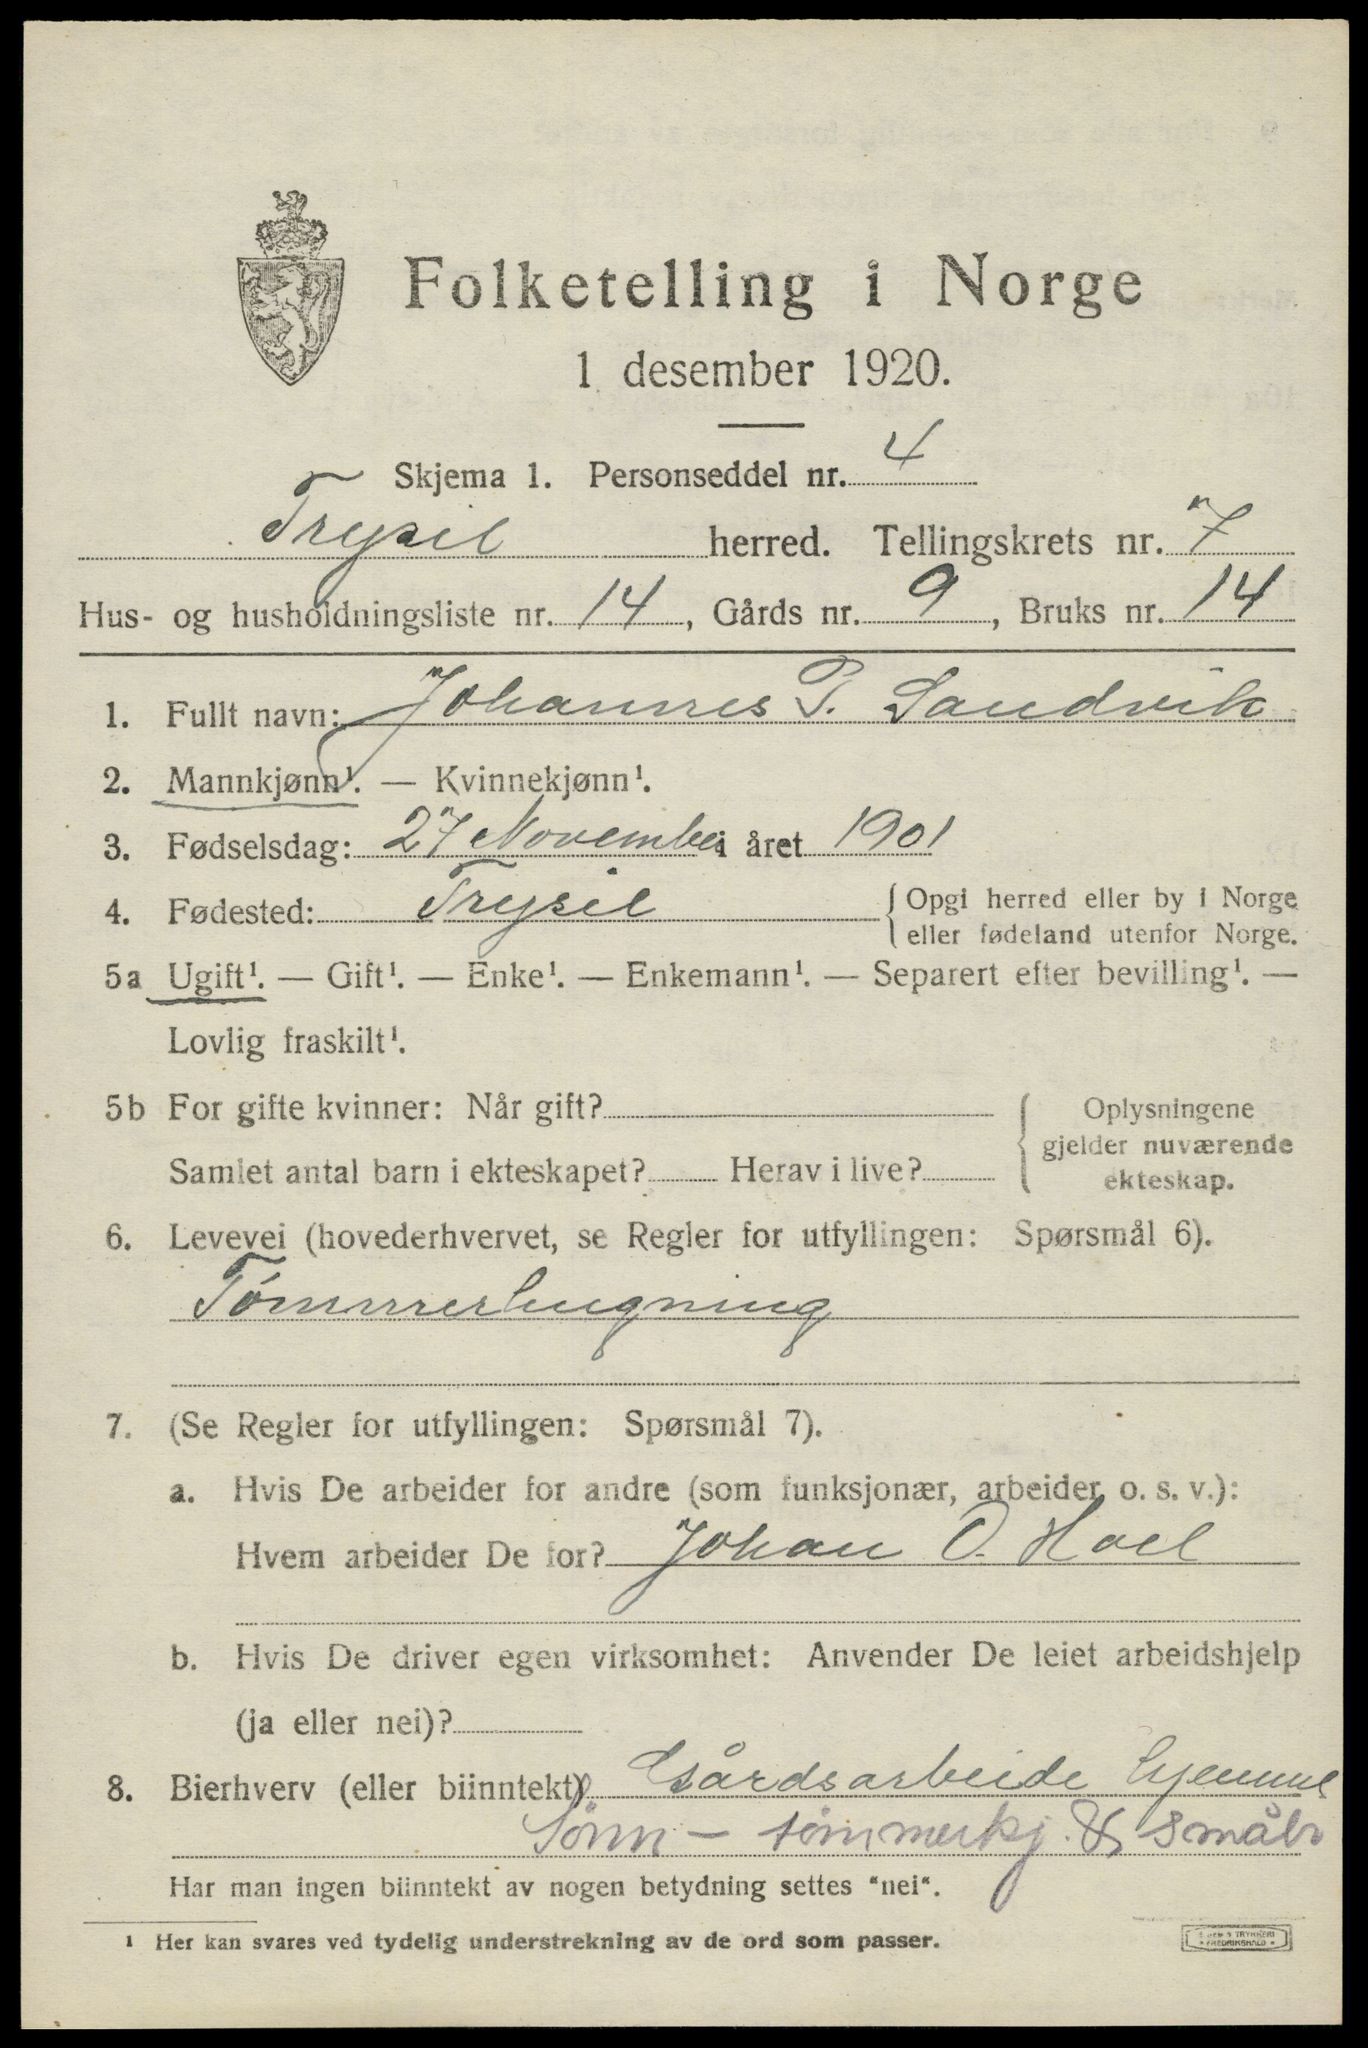 Folketelling i Norge
1 desember 1920.
Skjema 1. Personseddel nr. 4
Trysil herred. Tellingskrets nr. 7
Hus- og husholdningsliste nr. 14, Gårds nr. 9, Bruks nr. 14
1. Fullt navn: Johannes P. Sandvik
2. Mannkjønn¹. — Kvinnekjønn¹.
3. Fødselsdag: 27 November i året 1901
4. Fødested: Trysil { Opgi herred eller by i Norge
eller fødeland utenfor Norge.
5a Ugift¹. — Gift¹. — Enke¹. — Enkemann¹. — Separert efter bevilling¹. —
Lovlig fraskilt¹.
5b For gifte kvinner: Når gift? { Oplysningene
gjelder nuværende
Samlet antal barn i ekteskapet? Herav i live? ekteskap.
6. Levevei (hovederhvervet, se Regler for utfyllingen: Spørsmål 6).
Tømmerhugning
7. (Se Regler for utfyllingen: Spørsmål 7).
a. Hvis De arbeider for andre (som funksjonær, arbeider, o. s. v.):
Hvem arbeider De for? Johan O. Hoel
b. Hvis De driver egen virksomhet: Anvender De leiet arbeidshjelp
(ja eller nei)?
8. Bierhverv (eller biinntekt) Gårdsarbeide hjemme
Sønn — tømmerkj. & småbr
Har man ingen biinntekt av nogen betydning settes "nei".
¹ Her kan svares ved tydelig understrekning av de ord som passer.